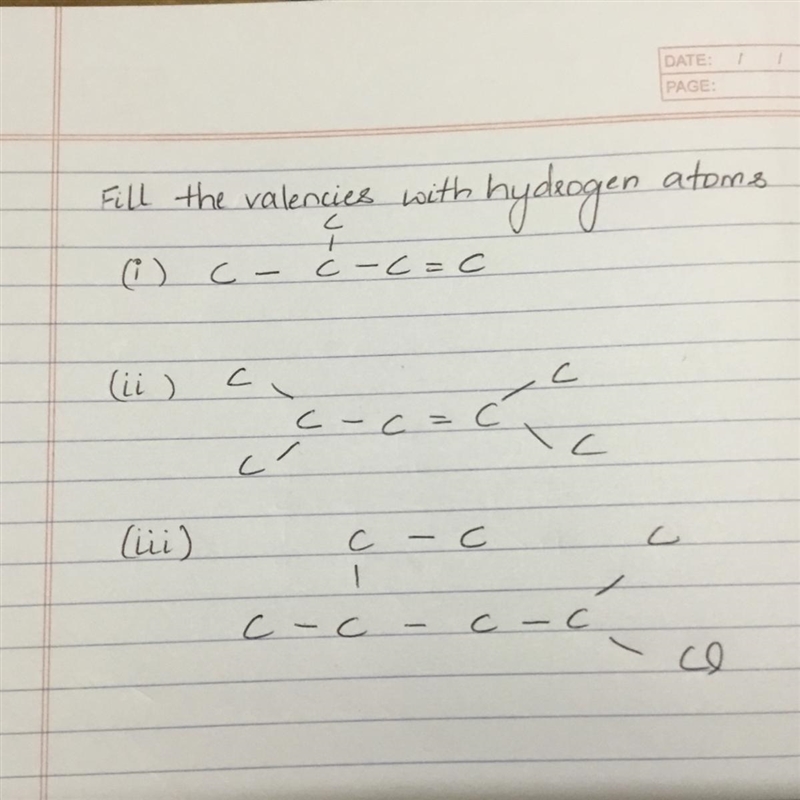 DATE: / /
PAGE:
Fill the valencies with hydrogen atoms
C
|
(i) C - C - C = C
(ii) C C
\ /
C - C = C
/ \
C C
(iii) C - C C
| /
C - C - C - C
\
Cl